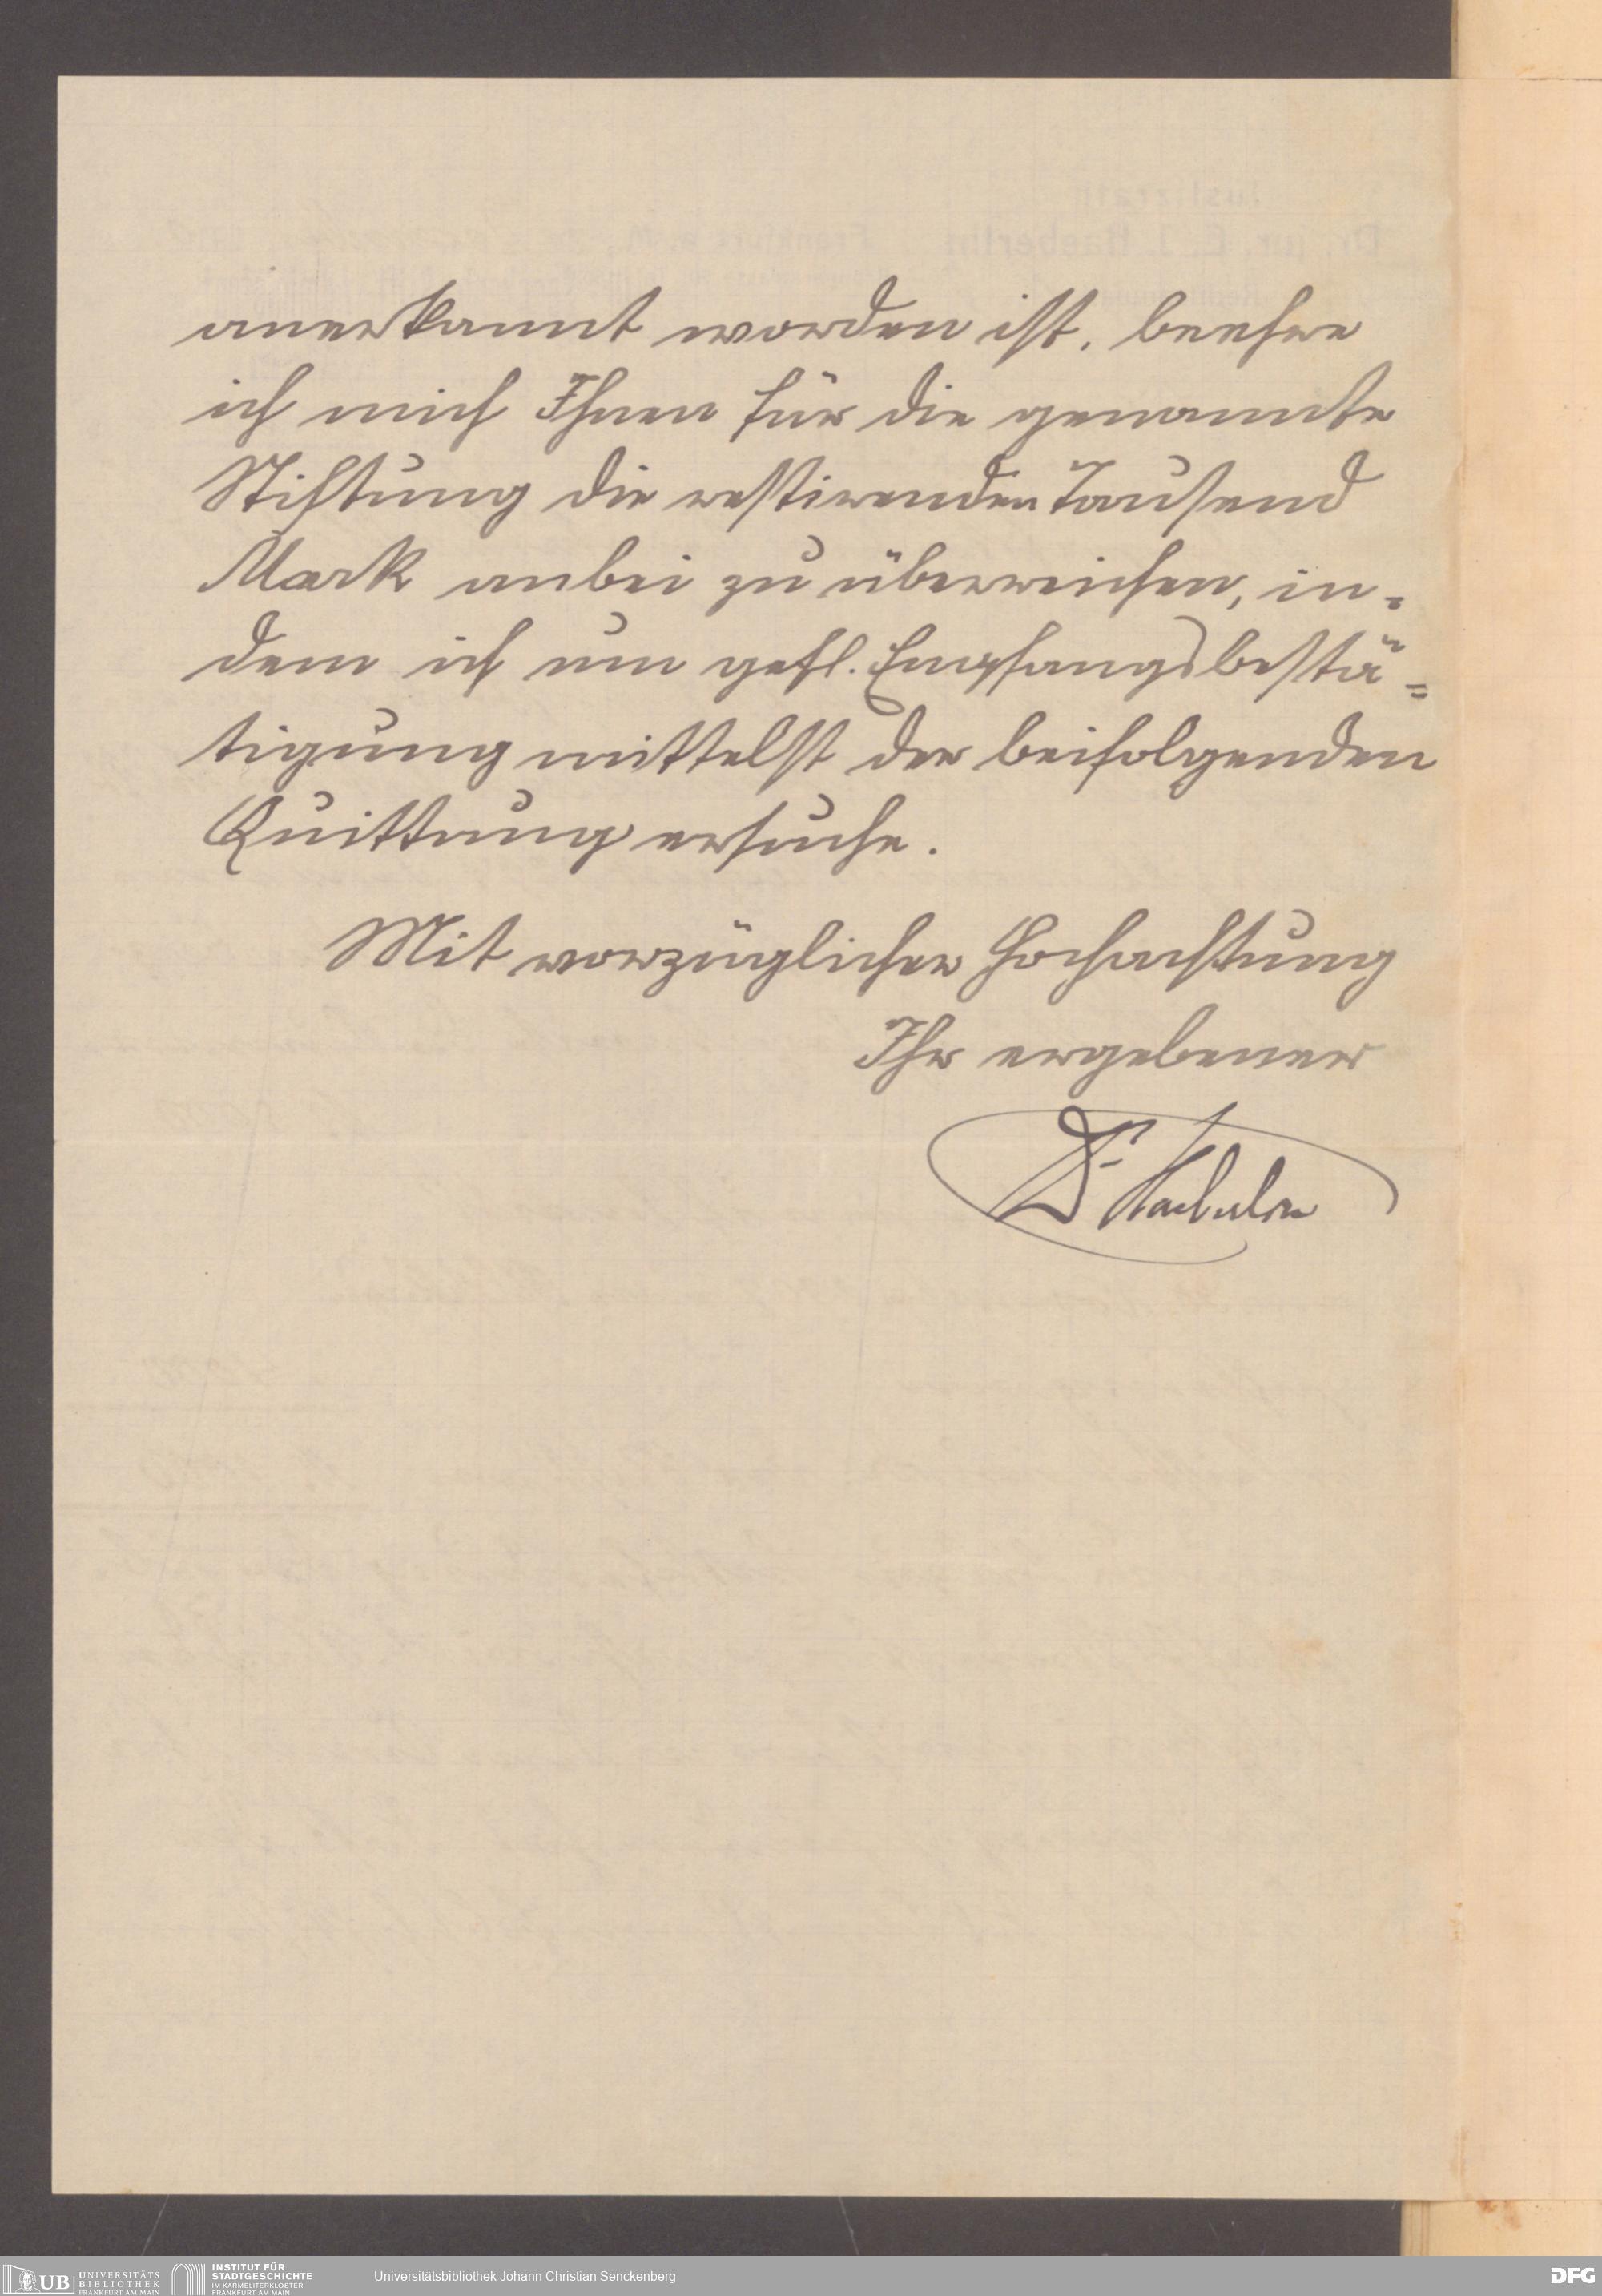 anerkannt worden ist, beehre
ich mich Ihnen für die genannte
Stiftung die restirenden Tausend
Mark anbei zu überreichen, in=
dem ich um gefl. Empfangsbestä=
tigung mittelst der beifolgenden
Quittung ersuche.
Mit vorzüglicher Hochachtung
Ihr ergebener
Dr Haeberlin
UB UNIVERSITÄTS
BIBLIOTHEK
FRANKFURT AM MAIN
INSTITUT FÜR
STADTGESCHICHTE
IM KARMELITERKLOSTER
FRANKFURT AM MAIN
Universitätsbibliothek Johann Christian Senckenberg
DFG